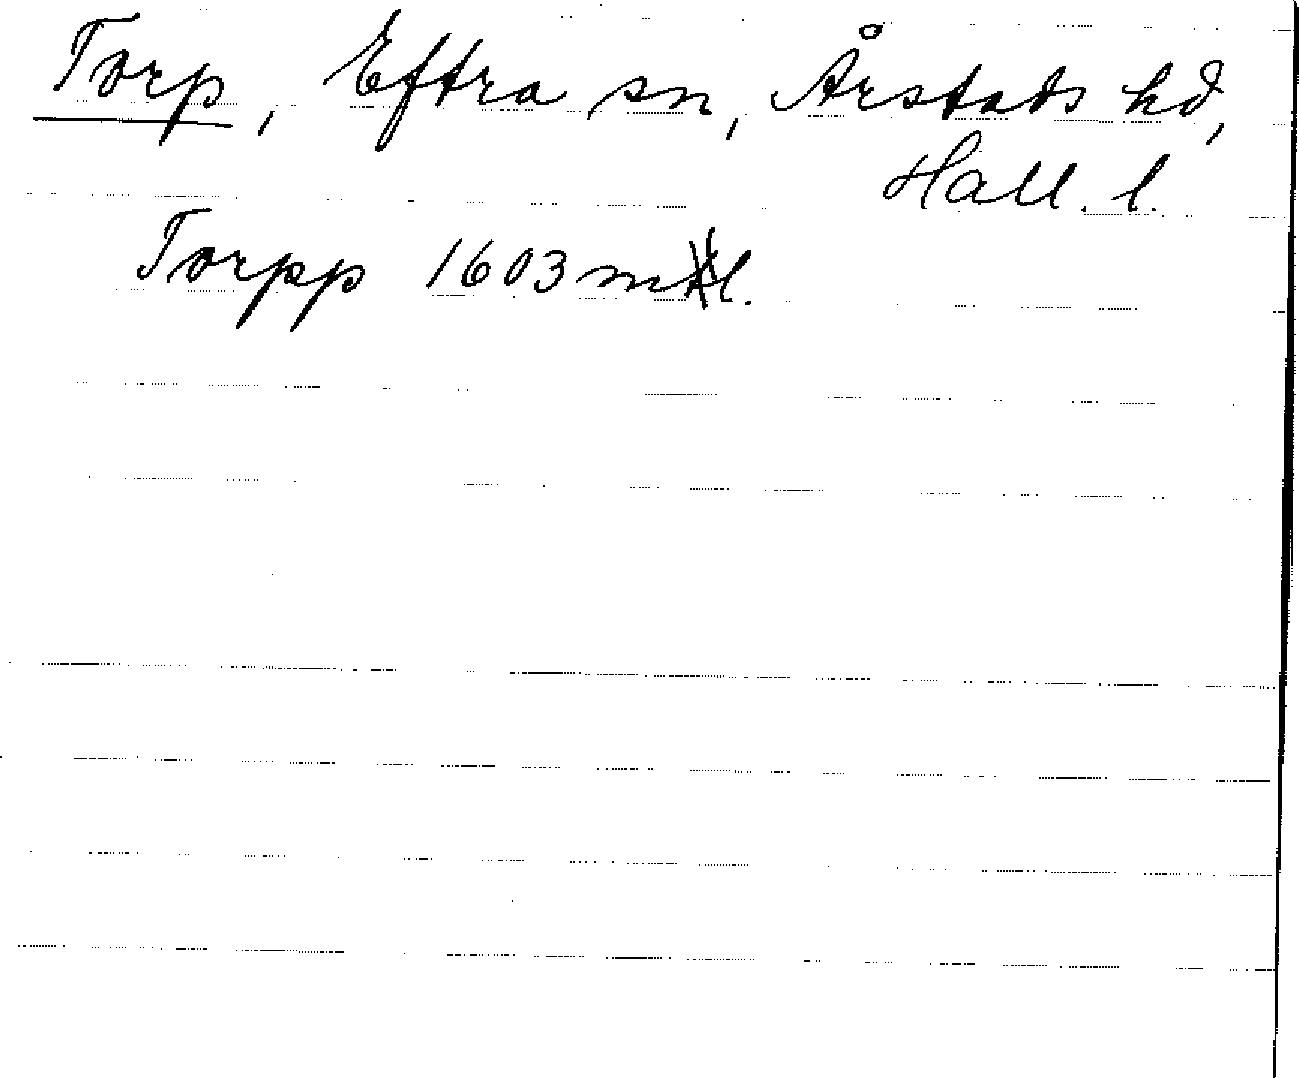 Torp, Eftra sn, Årstads hd,
Hall. l.
Torpp 1603 ml.